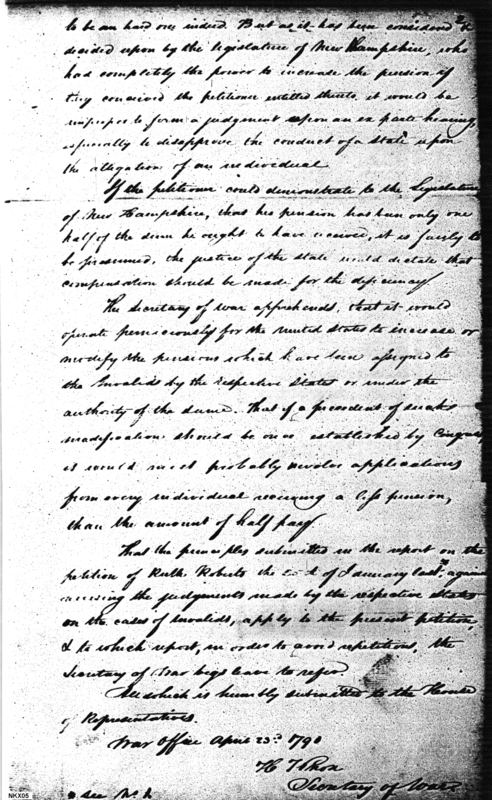 to be an hard one indeed. But as it has been considered &
decided upon by the legislature of New Hampshire, who
had completely the power to increase the pension if
they conceived the petitioner entitled thereto, it would be
improper to form a judgement upon an ex parte hearing,
especially to disapprove the conduct of a State upon
the allegation of an individual
If the petitioner could demonstrate to the Legislature
of New Hampshire, that his pension has been only one
half of the sum he ought to have received, it is fairly to
be presumed, the justice of the state would dictate that
compensation should be made for the deficiency
The Secretary of war apprehends, that it would
operate perniciously for the united States to increase or
modify the pensions which have been assigned to
the Invalids by the respective States or under the
authority of the same. That if a precedent of such
modification should be once established by Congress
it would most probably involve applications
from every individual receiving a less pension,
than the amount of half pay
That the principles submitted in the report on the
petition of Ruth Roberts the of January last, against
revising the judgements made by the respective States
on the cases of invalids, apply to the present petition,
& to which report, in order to avoid repetitions, the
Secretary of War begs leave to refer.
All which is humbly submitted to the House
of Representatives.
War Office April 23d 1790
H Knox
Secretary of War
see No
NKX05